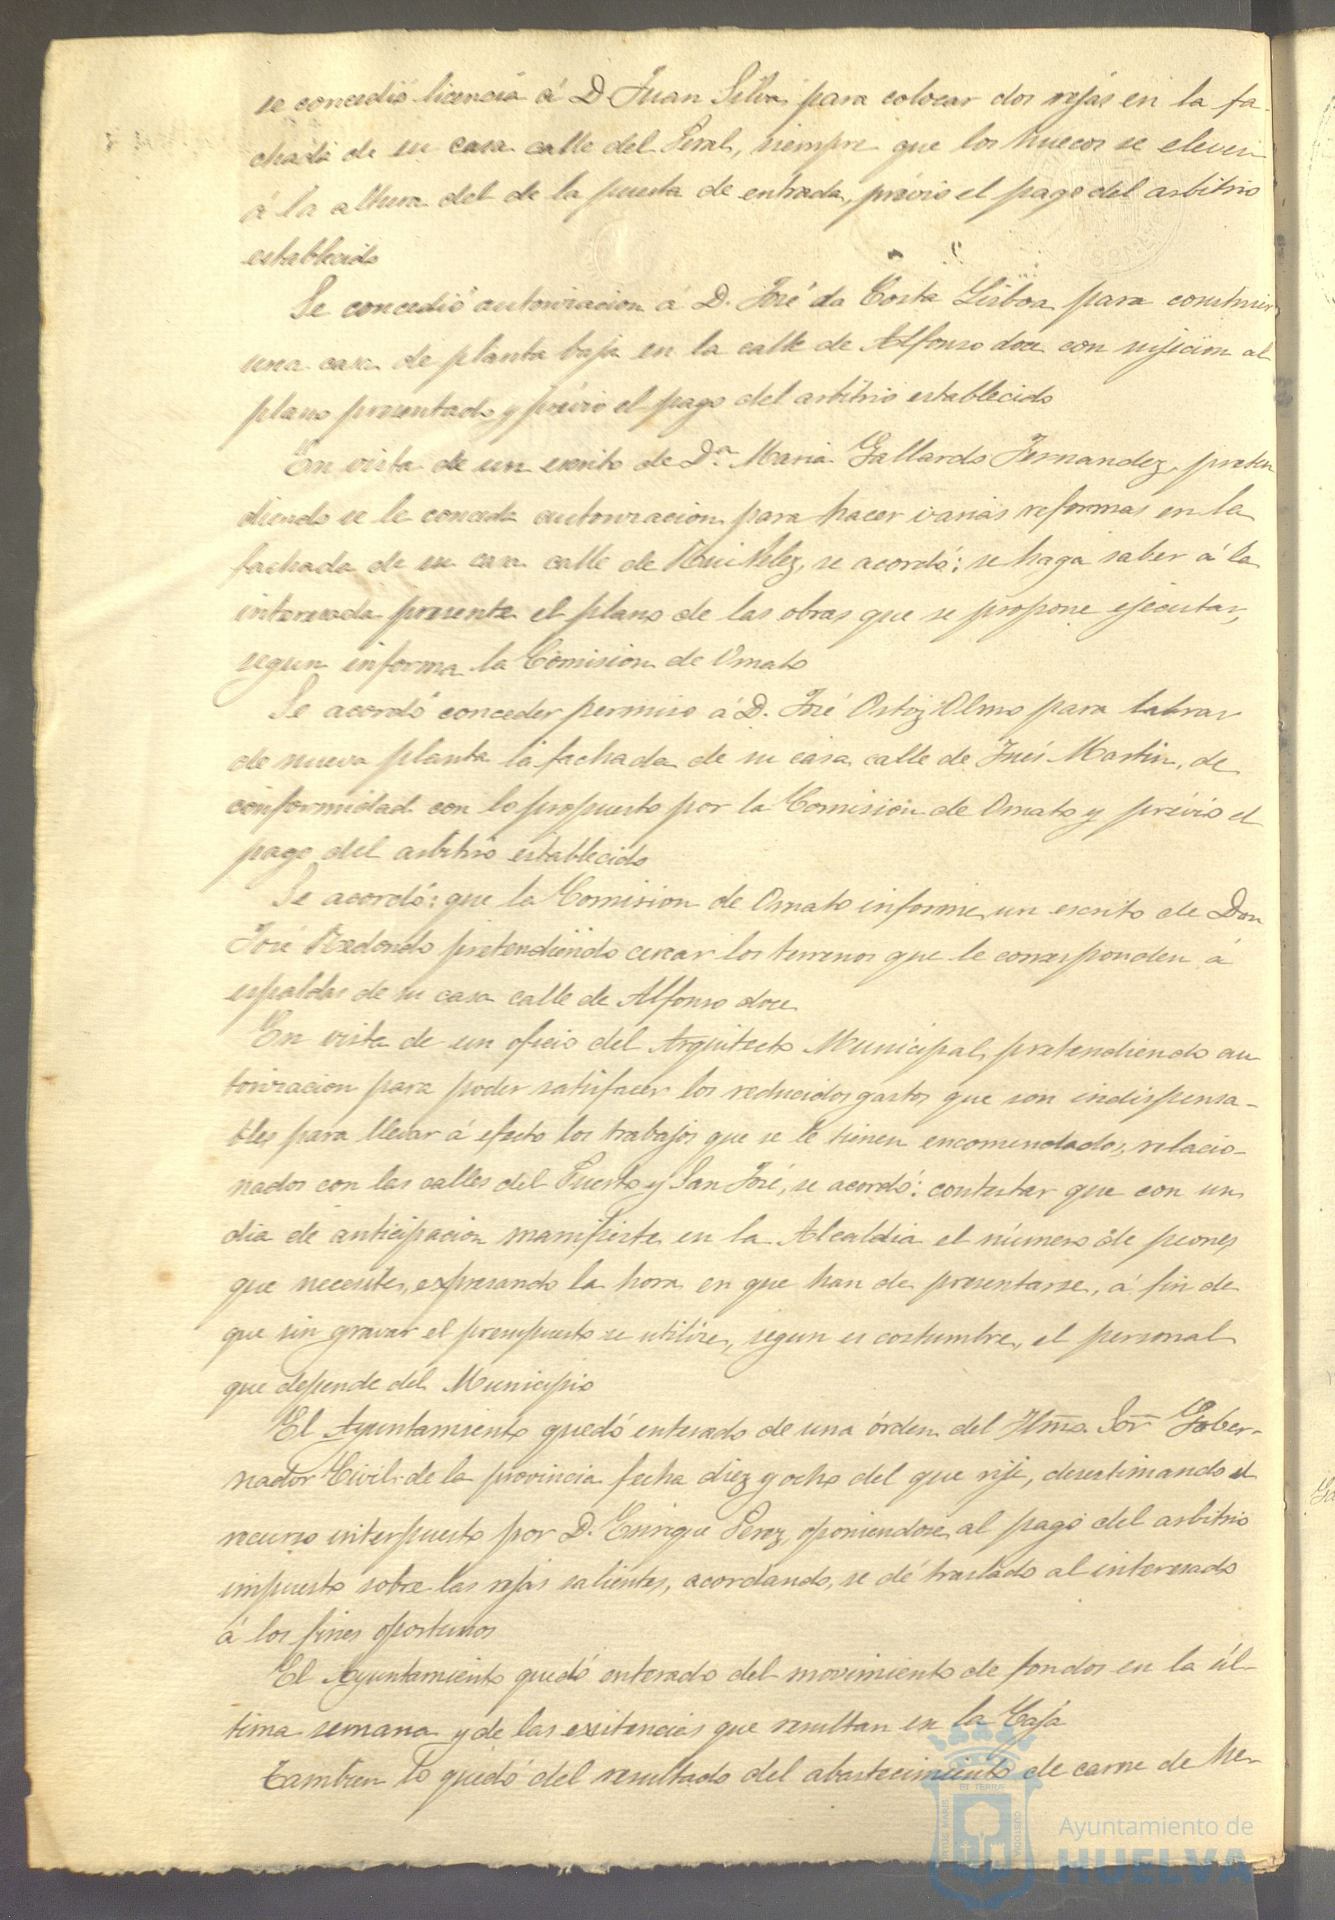 se concedió licencia á D. Juan Silva para colocar dos rejas en la fa-
chada de su casa calle del Peral, siempre que los huecos se eleven
á la altura del de la puerta de entrada, prévio el pago del arbitrio
establecido
Se concedió autorizacion á D. José da Costa Lisboa para construir
una casa de planta baja en la calle de Alfonso doce con sujecion al
plano presentado y prévio el pago del arbitrio establecido
En vista de un escrito de D.ª Maria Gallardo Fernandez, preten
diendo se le conceda autorizacion para hacer varias reformas en la
fachada de su casa calle de Rui Velez, se acordó: se haga saber á la
interesada presente el plano de las obras que se propone ejecutar,
segun informa la Comision de Ornato
Se acordó conceder permiso á D. José Ortiz Olmo para labrar
de nueva planta la fachada de su casa calle de Inés Martin, de
conformidad con lo propuesto por la Comision de Ornato y prévio el
pago del arbitrio establecido
Se acordó: que la Comision de Ornato informe un escrito de Don
José Redondo pretendiendo cercar los terrenos que le corresponden á
espaldas de su casa calle de Alfonso doce
En vista de un oficio del Arquitecto Municipal, pretendiendo au
torizacion para poder satisfacer los reducidos gastos que son indispensa-
bles para llevar á efecto los trabajos que se le tienen encomendados, relacio-
nados con las calles del Puerto y San José, se acordó: contestar que con un
dia de anticipacion manifieste en la Alcaldia el número de peones
que necesite, expresando la hora en que han de presentarse, á fin de
que sin gravar el presupuesto se utilize, segun es costumbre, el personal
que depende del Municipio
El Ayuntamiento quedó enterado de una órden del Iltmo. Sor. Gober-
nador Civil de la provincia fecha diez y ocho del que rije, desestimando el
recurso interpuesto por D. Enrique Perez, oponiendose al pago del arbitrio
impuesto sobre las rejas salientes, acordando, se dé traslado al interesado
á los fines oportunos
El Ayuntamiento quedó enterado del movimiento de fondos en la úl-
tima semana y de las existencias que resultan en la Caja
Tambien lo quedó del resultado del abastecimiento de carne de he-
Ayuntamiento de
HUELVA